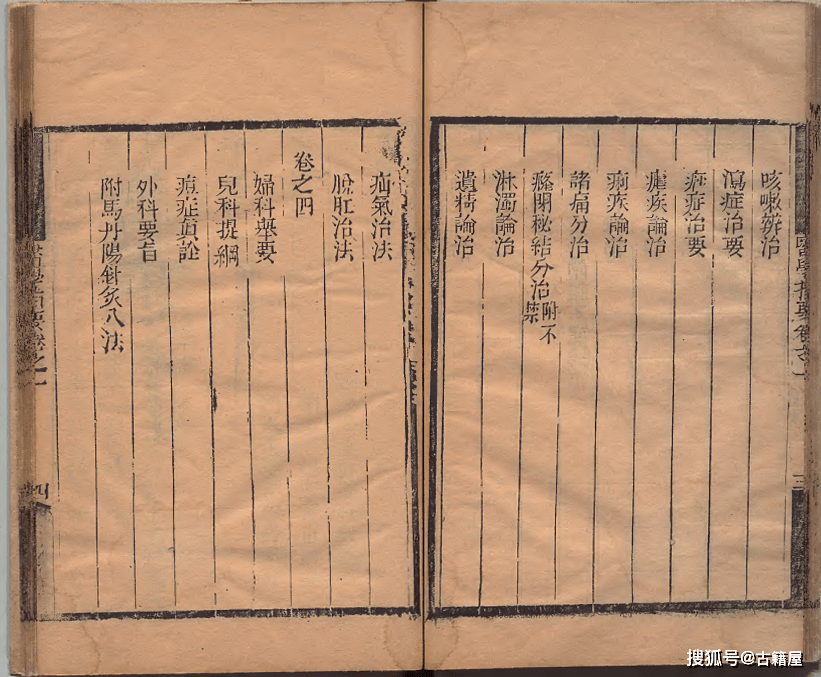 醫學指要卷之一
三
咳嗽辨治
瀉症治要
症治要
瘧疾論治
痢疾論治
諸痛分治
癃閉秘結分治 附不禁
淋濁論治
遺精論治
疝氣治法
脫肛治法
卷之四
婦科舉要
兒科提綱
痘症真訣
外科要旨
附馬丹陽針灸八法
醫學指要卷之一
四
搜狐号@古籍屋